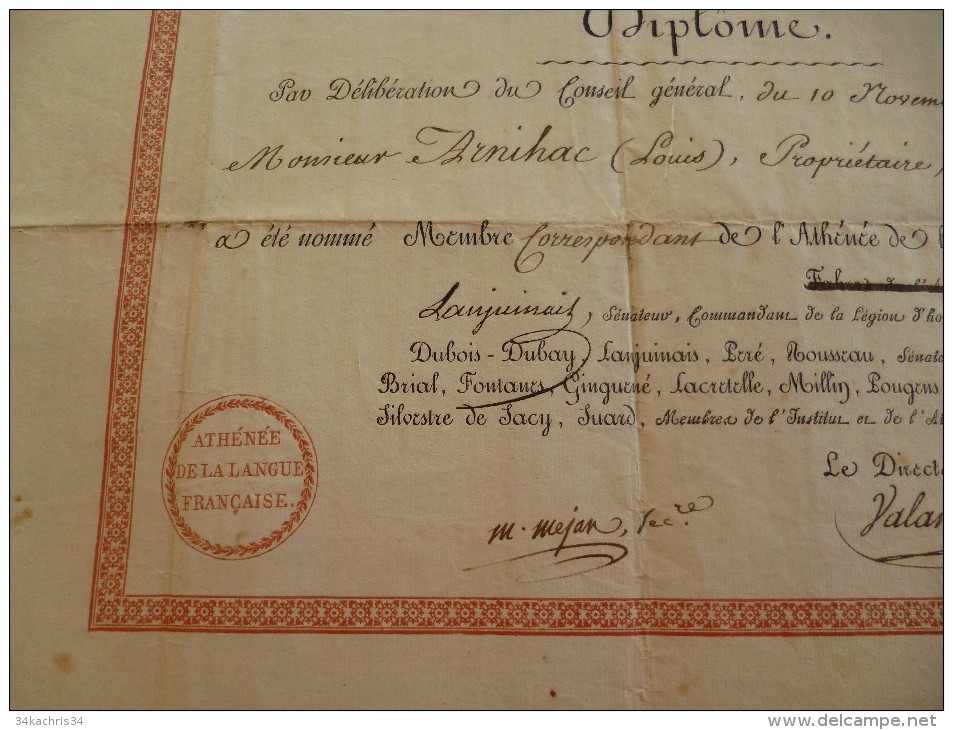 Diplôme.
Par Délibération du Conseil général, du 10 Novem
Monsieur Arnihac (Louis), Propriétaire,
a été nommé Membre Correspondant de l'Athénée de l
Lanjuinais, Sénateur, Commandant de la Légion d'ho
Dubois-Dubay, Lanjuinais, Peré, Rousseau, Sénate
Brial, Fontanes, Ginguené, Lacretelle, Millin, Pougens
Silvestre de Sacy, Suard, Membres de l'Institut et de l'A
Le Direct
m. mejan, Secre.
Valan
ATHÉNÉE
DE LA LANGUE
FRANÇAISE.
34kachris34
www.delcampe.net